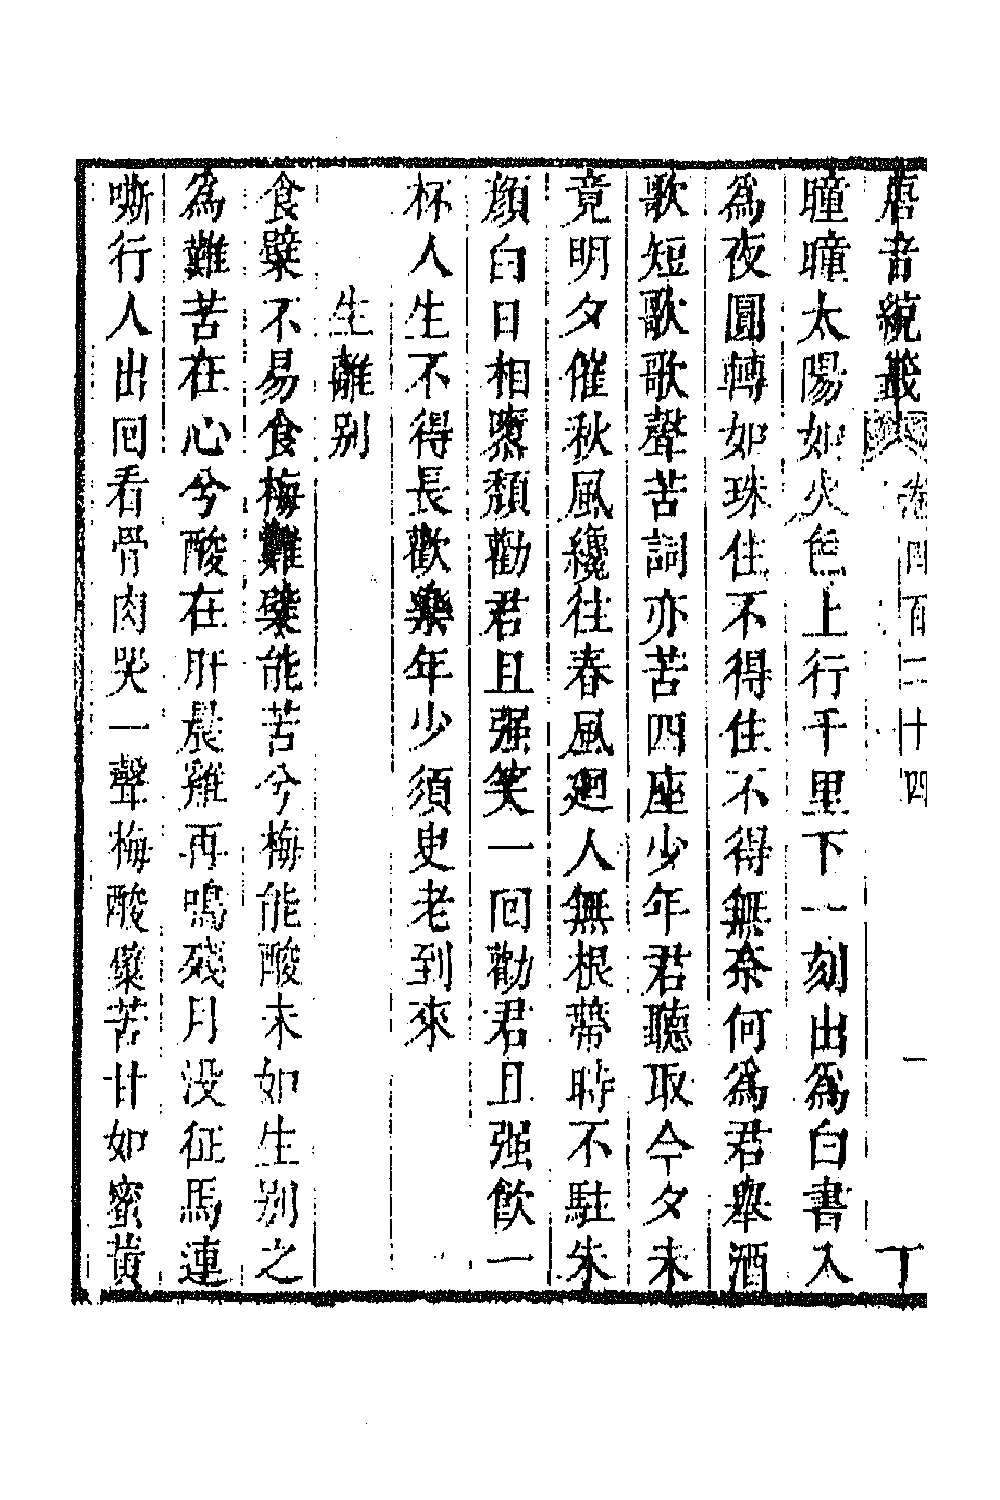 唐音統籖 卷四百二十四 一 丁
曈曈太陽如火色上行千里下一刻出爲白晝入
爲夜圓轉如珠住不得住不得無奈何爲君舉酒
歌短歌歌聲苦詞亦苦四座少年君聽取今夕未
竟明夕催秋風纔往春風廻人無根蒂時不駐朱
顏白日相隳頹勸君且强笑一回勸君且强飲一
杯人生不得長歡樂年少須臾老到來
生離别
食檗不易食梅難檗能苦兮梅能酸未如生别之
爲難苦在心兮酸在肝晨雞再鳴殘月没征馬連
嘶行人出回看骨肉哭一聲梅酸檗苦甘如蜜黄